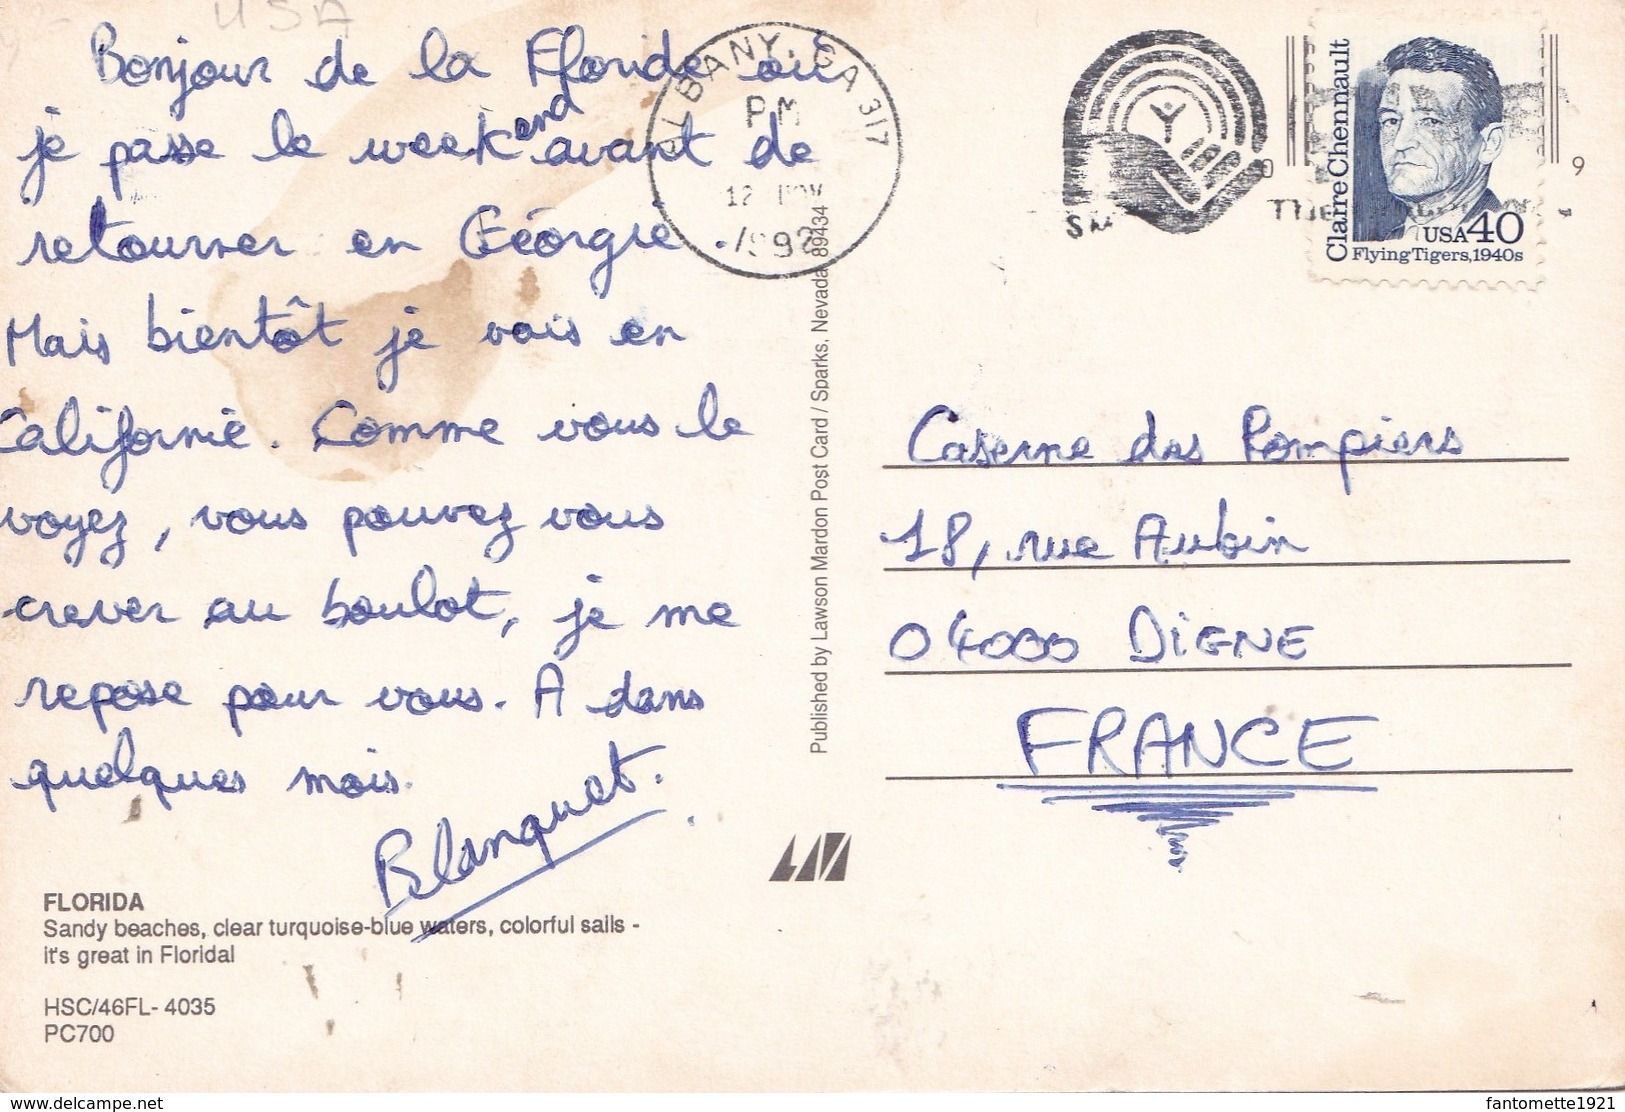 USA
Bonjour de la Floride où
je passe le weekend avant de
retourner en Géorgie.
Mais bientôt je vais en
Californie. Comme vous le
voyez, vous pouvez vous
crever au boulot, je me
repose pour vous. A dans
quelques mois.
Blanquet.
FLORIDA
Sandy beaches, clear turquoise-blue waters, colorful sails -
it's great in Florida!
HSC/46FL- 4035
PC700
Published by Lawson Mardon Post Card / Sparks, Nevada 89434
ALBANY, GA 317
PM
12 NOV
1992
Claire Chennault
USA 40
Flying Tigers, 1940s
9
Caserne des Pompiers
18, rue Aubin
04000 DiGNE
FRANCE
www.delcampe.net
fantomette1921